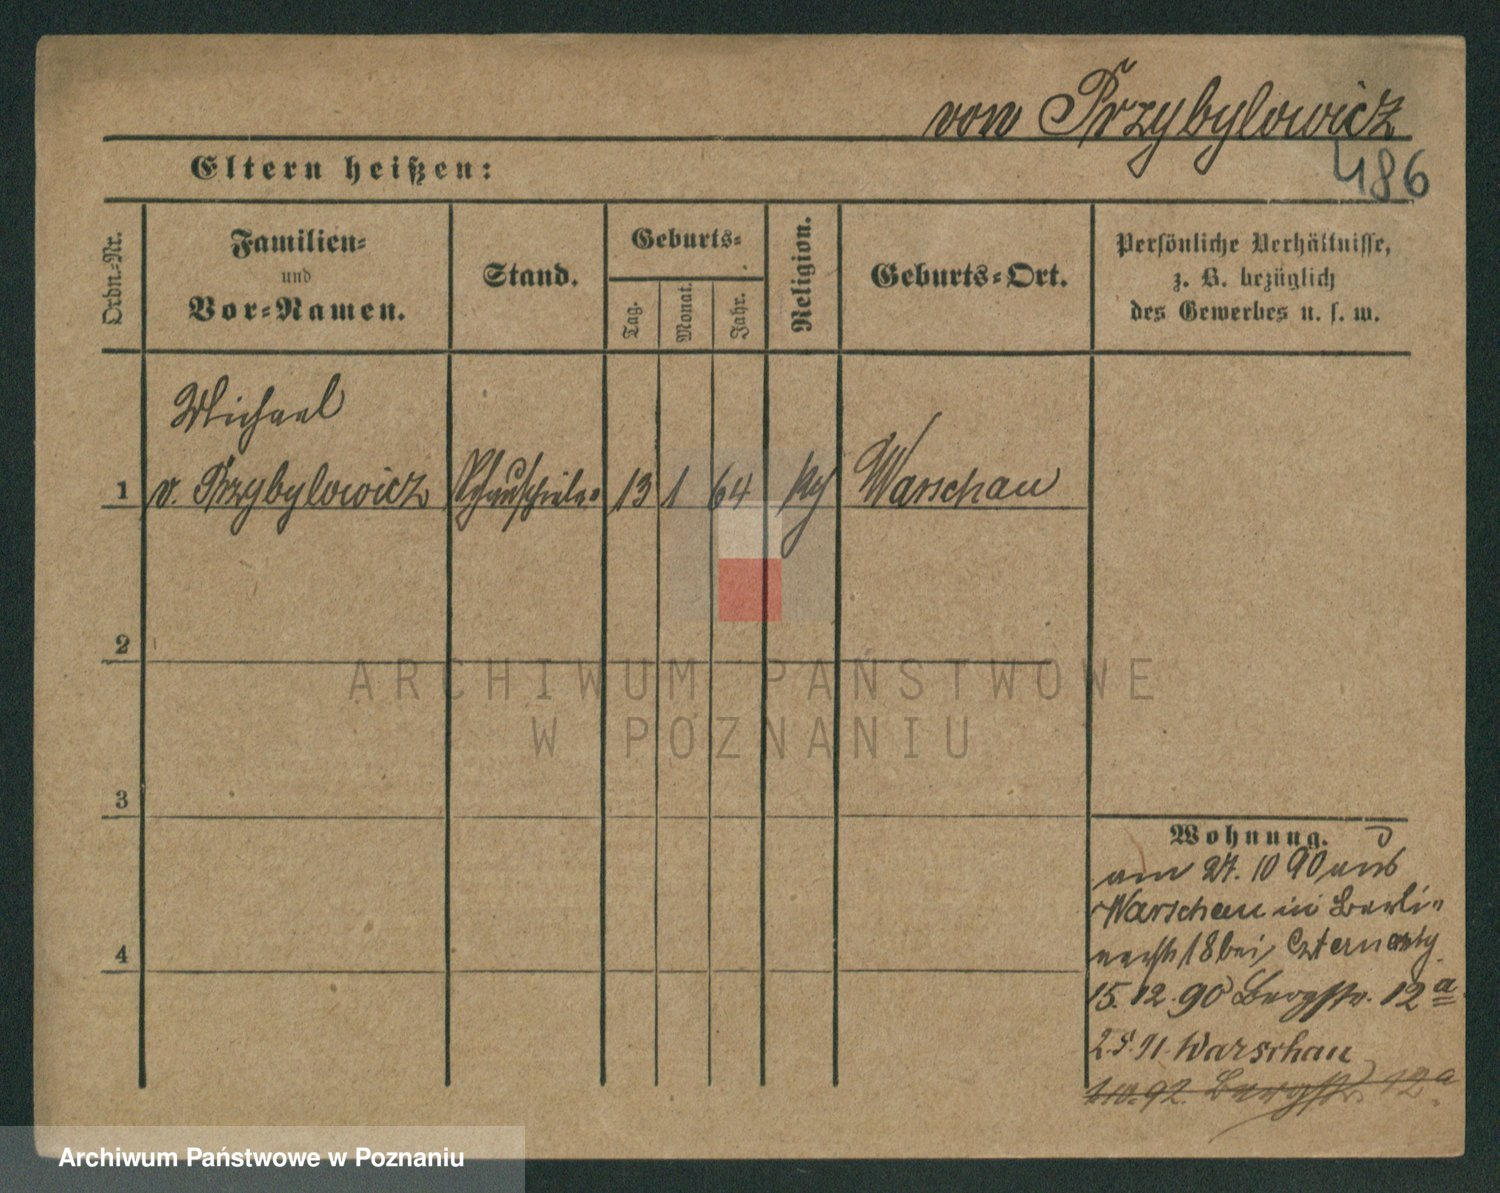 von Przybylowicz
486
Eltern heißen:
Ordn.-Nr.
Familien-
und
Vor-Namen.
Stand.
Geburts-
Tag.
Monat.
Jahr.
Religion.
Geburts-Ort.
Persönliche Verhältnisse,
z. B. bezüglich
des Gewerbes u. s. w.
Michael
1 v. Przybylowicz Schauspieler 13 1 64 Warschau
2
3
4
Wohnung.
am 27. 10 90 aus
Warschau in
18 bei
15. 12. 90 Bergstr. 12a
Warschau
92. Bergstr. 12a
ARCHIWUM PAŃSTWOWE
W POZNANIU
Archiwum Państwowe w Poznaniu